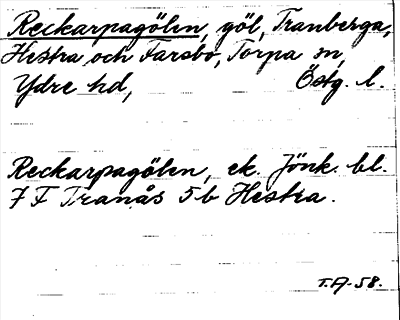 Reckarpagölen, göl, Tranberga,
Hestra och Farsbo, Torpa sn,
Ydre hd, Östg. l.
Reckarpagölen, ek. Jönk. bl.
7 F Tranås 5 b Hestra.
T.A-58.